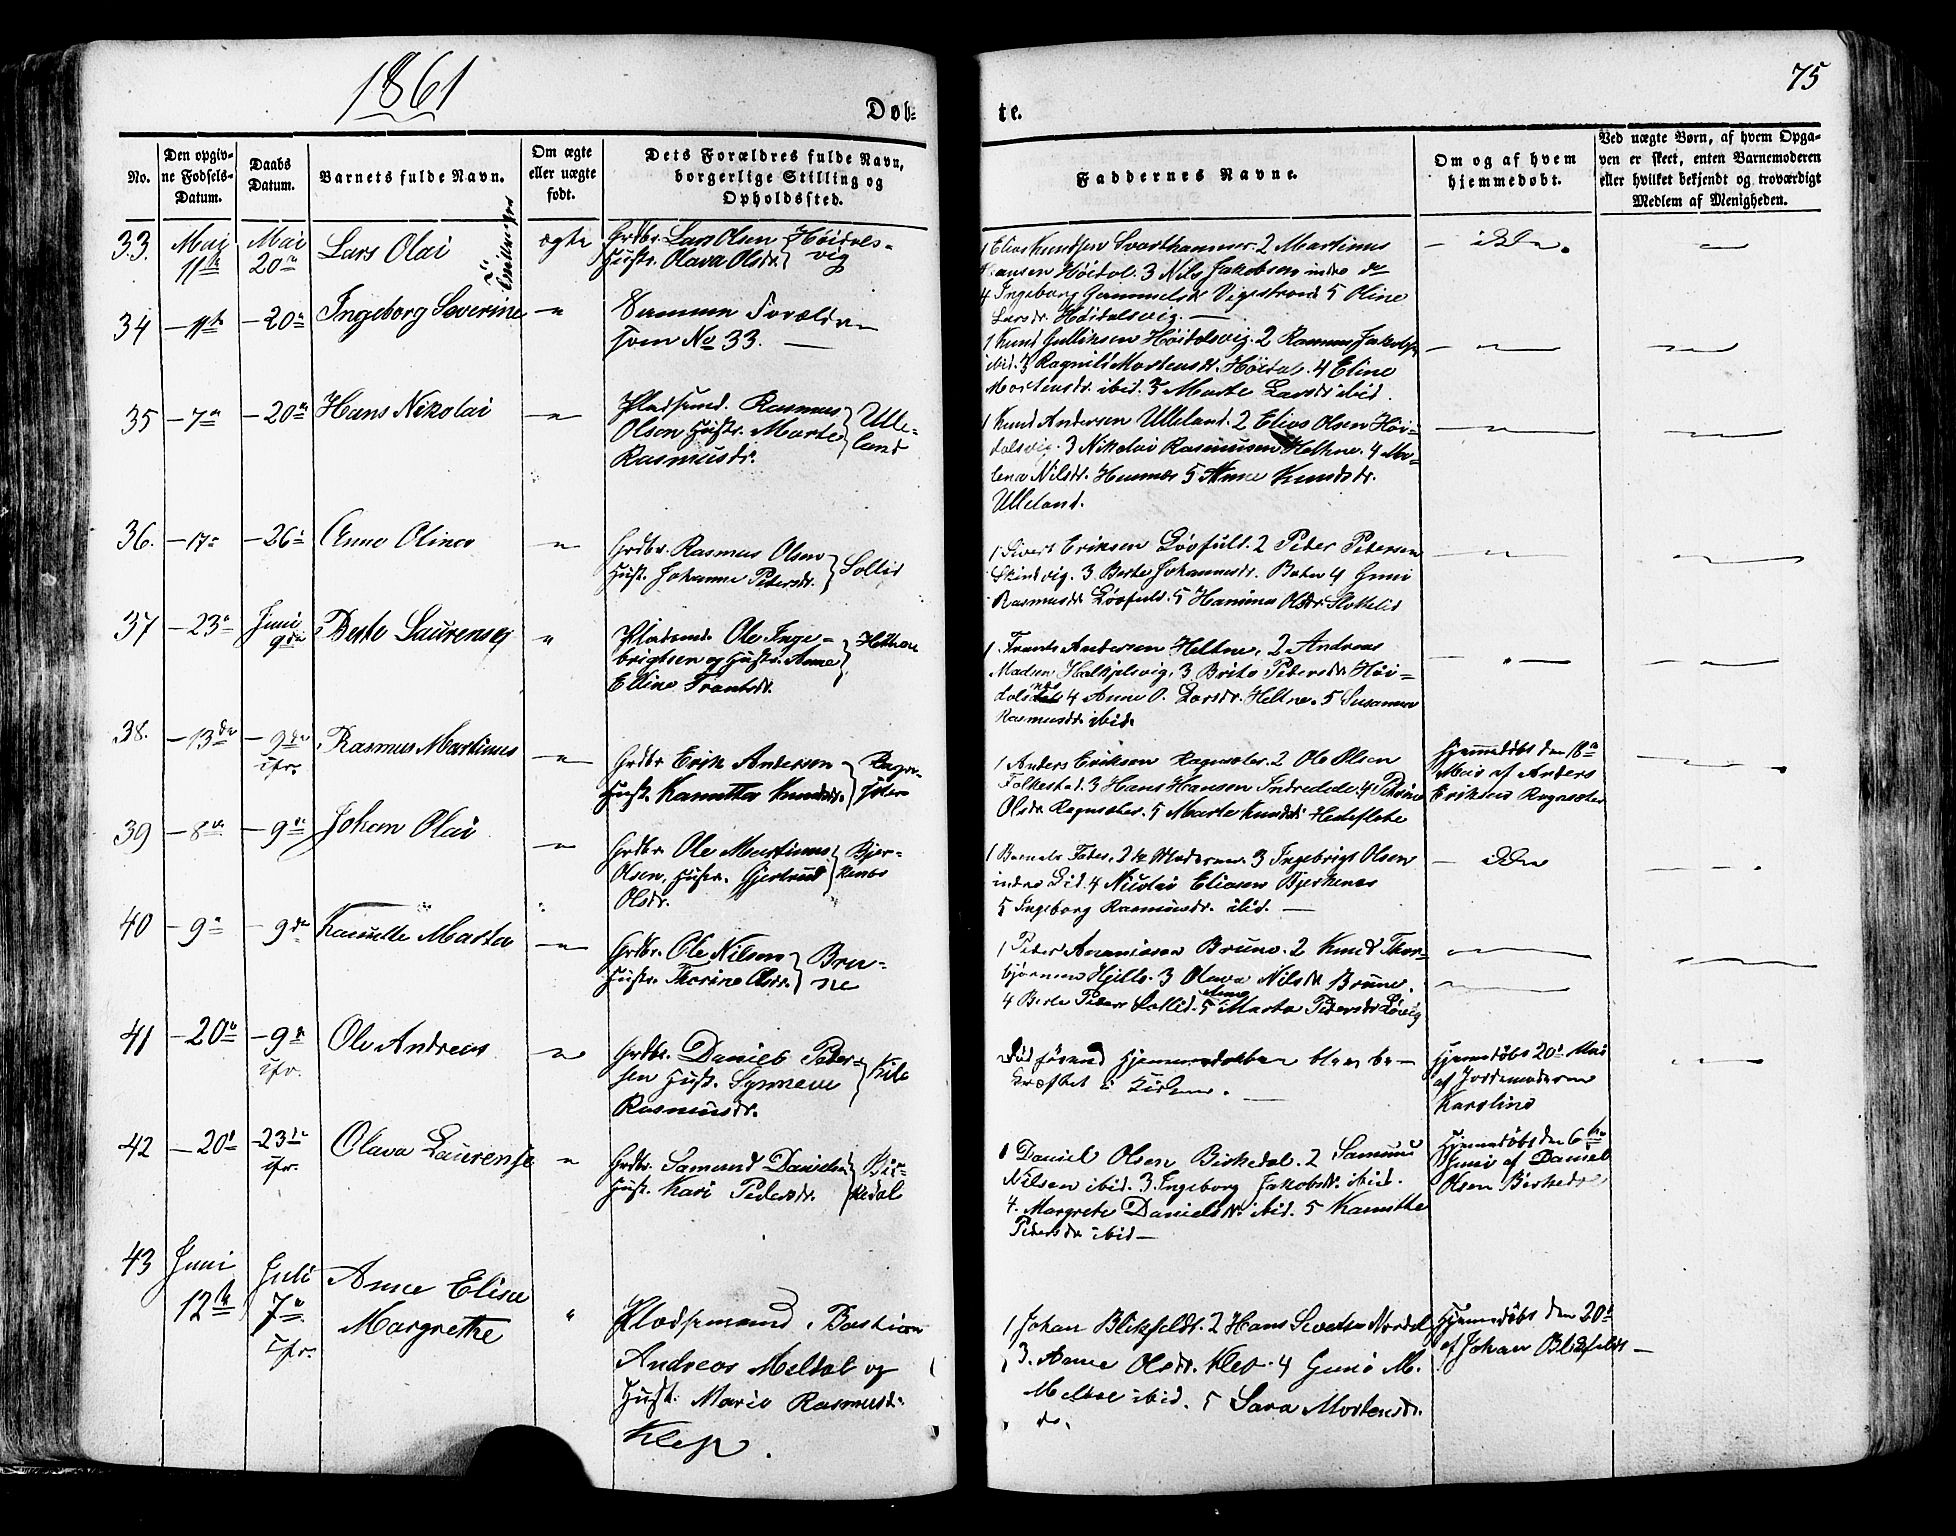 1861
Døb-
te.
75
No.
Den opgiv-
ne Fødsels-
Datum.
Daabs
Datum.
Barnets fulde Navn.
Om ægte
eller uægte
født.
Dets Forældres fulde Navn,
borgerlige Stilling og
Opholdssted.
Faddernes Navne.
Om og af hvem
hjemmedøbt.
Ved uægte Børn, af hvem Opga-
ven er skeet, enten Barnemoderen
eller hvilket bekjendt og troværdigt
Medlem af Menigheden.
33.
Mai
11te
Mai
20de
Lars Olai
ægte
Grdbr. Lars Olsen
Hustr. Olava Olsdr.
Høidals-
vig
1 Elias Knudsen Svarthammer. 2 Martinus
Hansen Høidal. 3 Nils Jakobsen indre do
4 Ingeborg Gammelsdr. Vigestrand 5 Oline
Larsdr. Høidalsvig. —
— ikke.
34 — 11te — 20de Ingeborg Severine — " —
Samme Forældre
som No 33. —
1 Knud Gulliksen Høidalsvig. 2 Rasmus Jakobs.
ibid. 3 Ragnild Mortensdr. Høidal. 4 Eline
Mortensdr. ibid. 5 Marte Larsdr. ibid.
35 — 7de — 20de Hans Nikolai — " —
Pladsmd. Rasmus
Olsen Hustr. Marte
Rasmusdr.
Ulle-
land
1 Knud Andersen Ulleland. 2 Elias Olsen Høi-
dalsvig. 3 Nikolai Rasmussen Heltne. 4 Ma-
lena Nilsdr. Hunnes 5 Anne Knudsdr.
Ulleland.
36. — 17de — 26de Anne Olina — " —
Grdbr. Rasmus Olsen
Hust. Johanne Petersdr.
Sollid
1 Sivert Eriksen Løvfuld. 2 Peder Petersen
Skindvig. 3 Berte Johannesdr. 4 Guri
Rasmusdr. Løvfuld. 5 Hansine Olsdr.
37 — 23de
Juni
9de
Berte Laurensa "
Pladsmd. Ole Inge-
brigtsen og Hustr. Anne
Elline Frantsdr.
Heltne
1. Frants Andersen Heltne. 2 Andreas
Madsen Halkjelsvig. 3 Brite Petersdr. Høi-
dalsnes 4 Anne O. Larsdr. Heltne. 5 Susanna
Rasmusdr. ibid.
38. — 13de — 9de
ifr.
Rasmus Martinus — " —
Grdbr Erik Andersen
Hust. Kanutta Knudsdr.
Ragn-
sæter
1 Anders Eriksen Ragnsæter. 2 Ole Olsen
Folkestad. 3 Hans Hansen Indredede. 4 Petrine
Olsdr. Ragnsæter. 5 Marte Knudsdr. Hedeflote
Hjemmedøbt den 18de
Mai af Anders
Eriksen Ragnsæter
39 — 8de — 9de Johan Olai — " —
Grdbr. Ole Martinus
Olsen, Hustr. Gjertrud
Olsdr.
Bjer-
kenes
1 Barnets Fader, 2 Moderen. 3 Ingebrigt Olsen
indre Lid. 4 Nicolai Eliasen Bjerkenes
5 Ingeborg Rasmusdr. ibid. —
— ikke
40 — 9de — 9de Kanutte Marta — " —
Grdbr. Ole Nilsen
Hustr. Thorine Olsdr.
Bru-
ne
1 Peter Ananiasen Brune. 2 Knud Thor-
bjørnsen Hjelle. 3 Olava Nilsdr. Brune.
4 Berte Pedersdr Sollid. 5 Anne Marta Pedersdr Løvig
41 — 20de — 9de
ifr.
Ole Andreas — " —
Grdbr. Daniel Peder-
sen Hust. Synneve
Rasmusdr.
Kile
Død førend Hjemmedaaben blev be-
kræftet i Kirken. —
Hjemmedøbt 20de Mai
af Jordemoderen
Karoline
42 — 20de — 23de
ifr.
Olava Laurense — " —
Grdbr. Samund Danielsen
Hust. Kari Pedersdr.
Bir-
kedal
1 Daniel Olsen Birkedal. 2 Samund
Nilsen ibid. 3. Ingeborg Jakobsdr. ibid.
4. Margrete Danielsdr. ibid. 5 Kanutte
Pedersdr ibid —
Hjemmedøbt den 6te
Juni af Daniel
Olsen Birkedal
43
Juni
12te
Juli
7de
ifr.
Anne Elise
Margrethe
"
Pladsemand, Bastian
Andreas Meldal og
Hust. Marie Rasmusdr.
Klep.
1 Johan Blikfeldt. 2 Hans Sivertsen Nordal
3. Anne Olsdr. Klep. 4 Guri M.
ibid. 5 Sara Mortensdr.
do.
Hjemmedøbt den 20de
af Johan Blikfeldt —